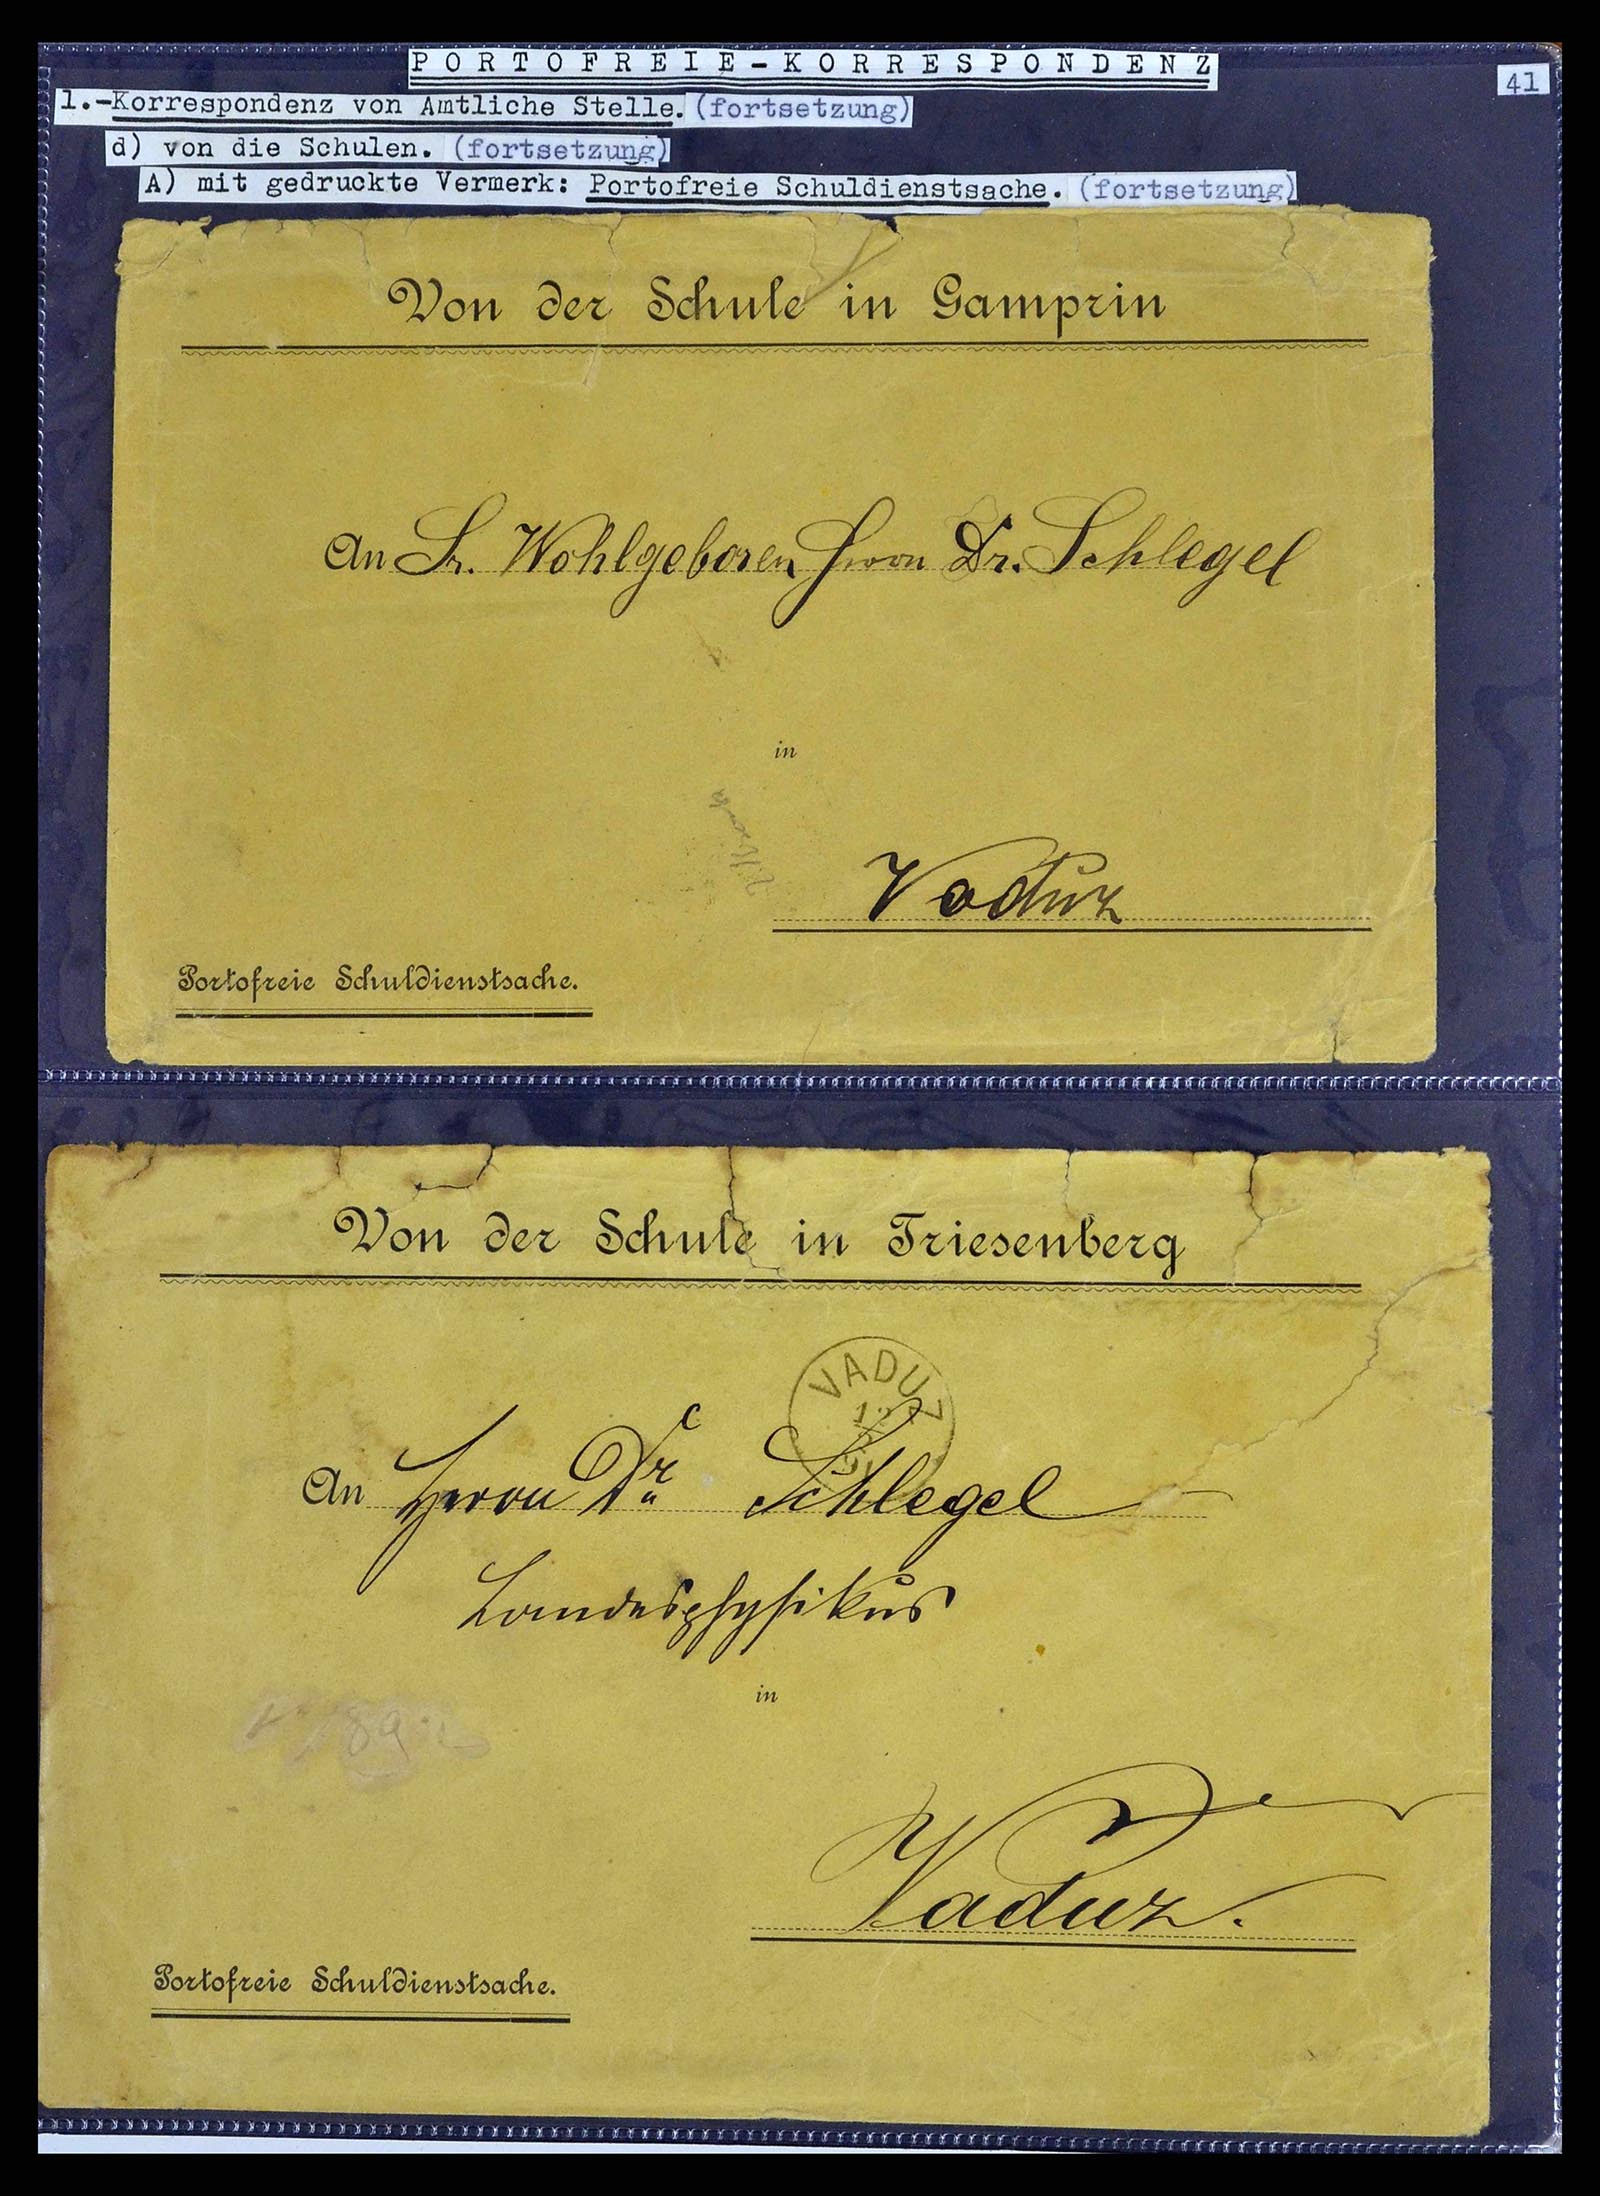 PORTOFREIE-KORRESPONDENZ
41
1.-Korrespondenz von Amtliche Stelle. (fortsetzung)
d) von die Schulen. (fortsetzung)
A) mit gedruckte Vermerk: Portofreie Schuldienstsache. (fortsetzung)
Von der Schule in Gamprin
An Sr. Wohlgeboren Herrn Dr. Schlegel
in
Vaduz
Portofreie Schuldienstsache.
Von der Schule in Triesenberg
VADUZ
An Herrn Dr. Schlegel
Landesphysikus
in
Vaduz.
Portofreie Schuldienstsache.